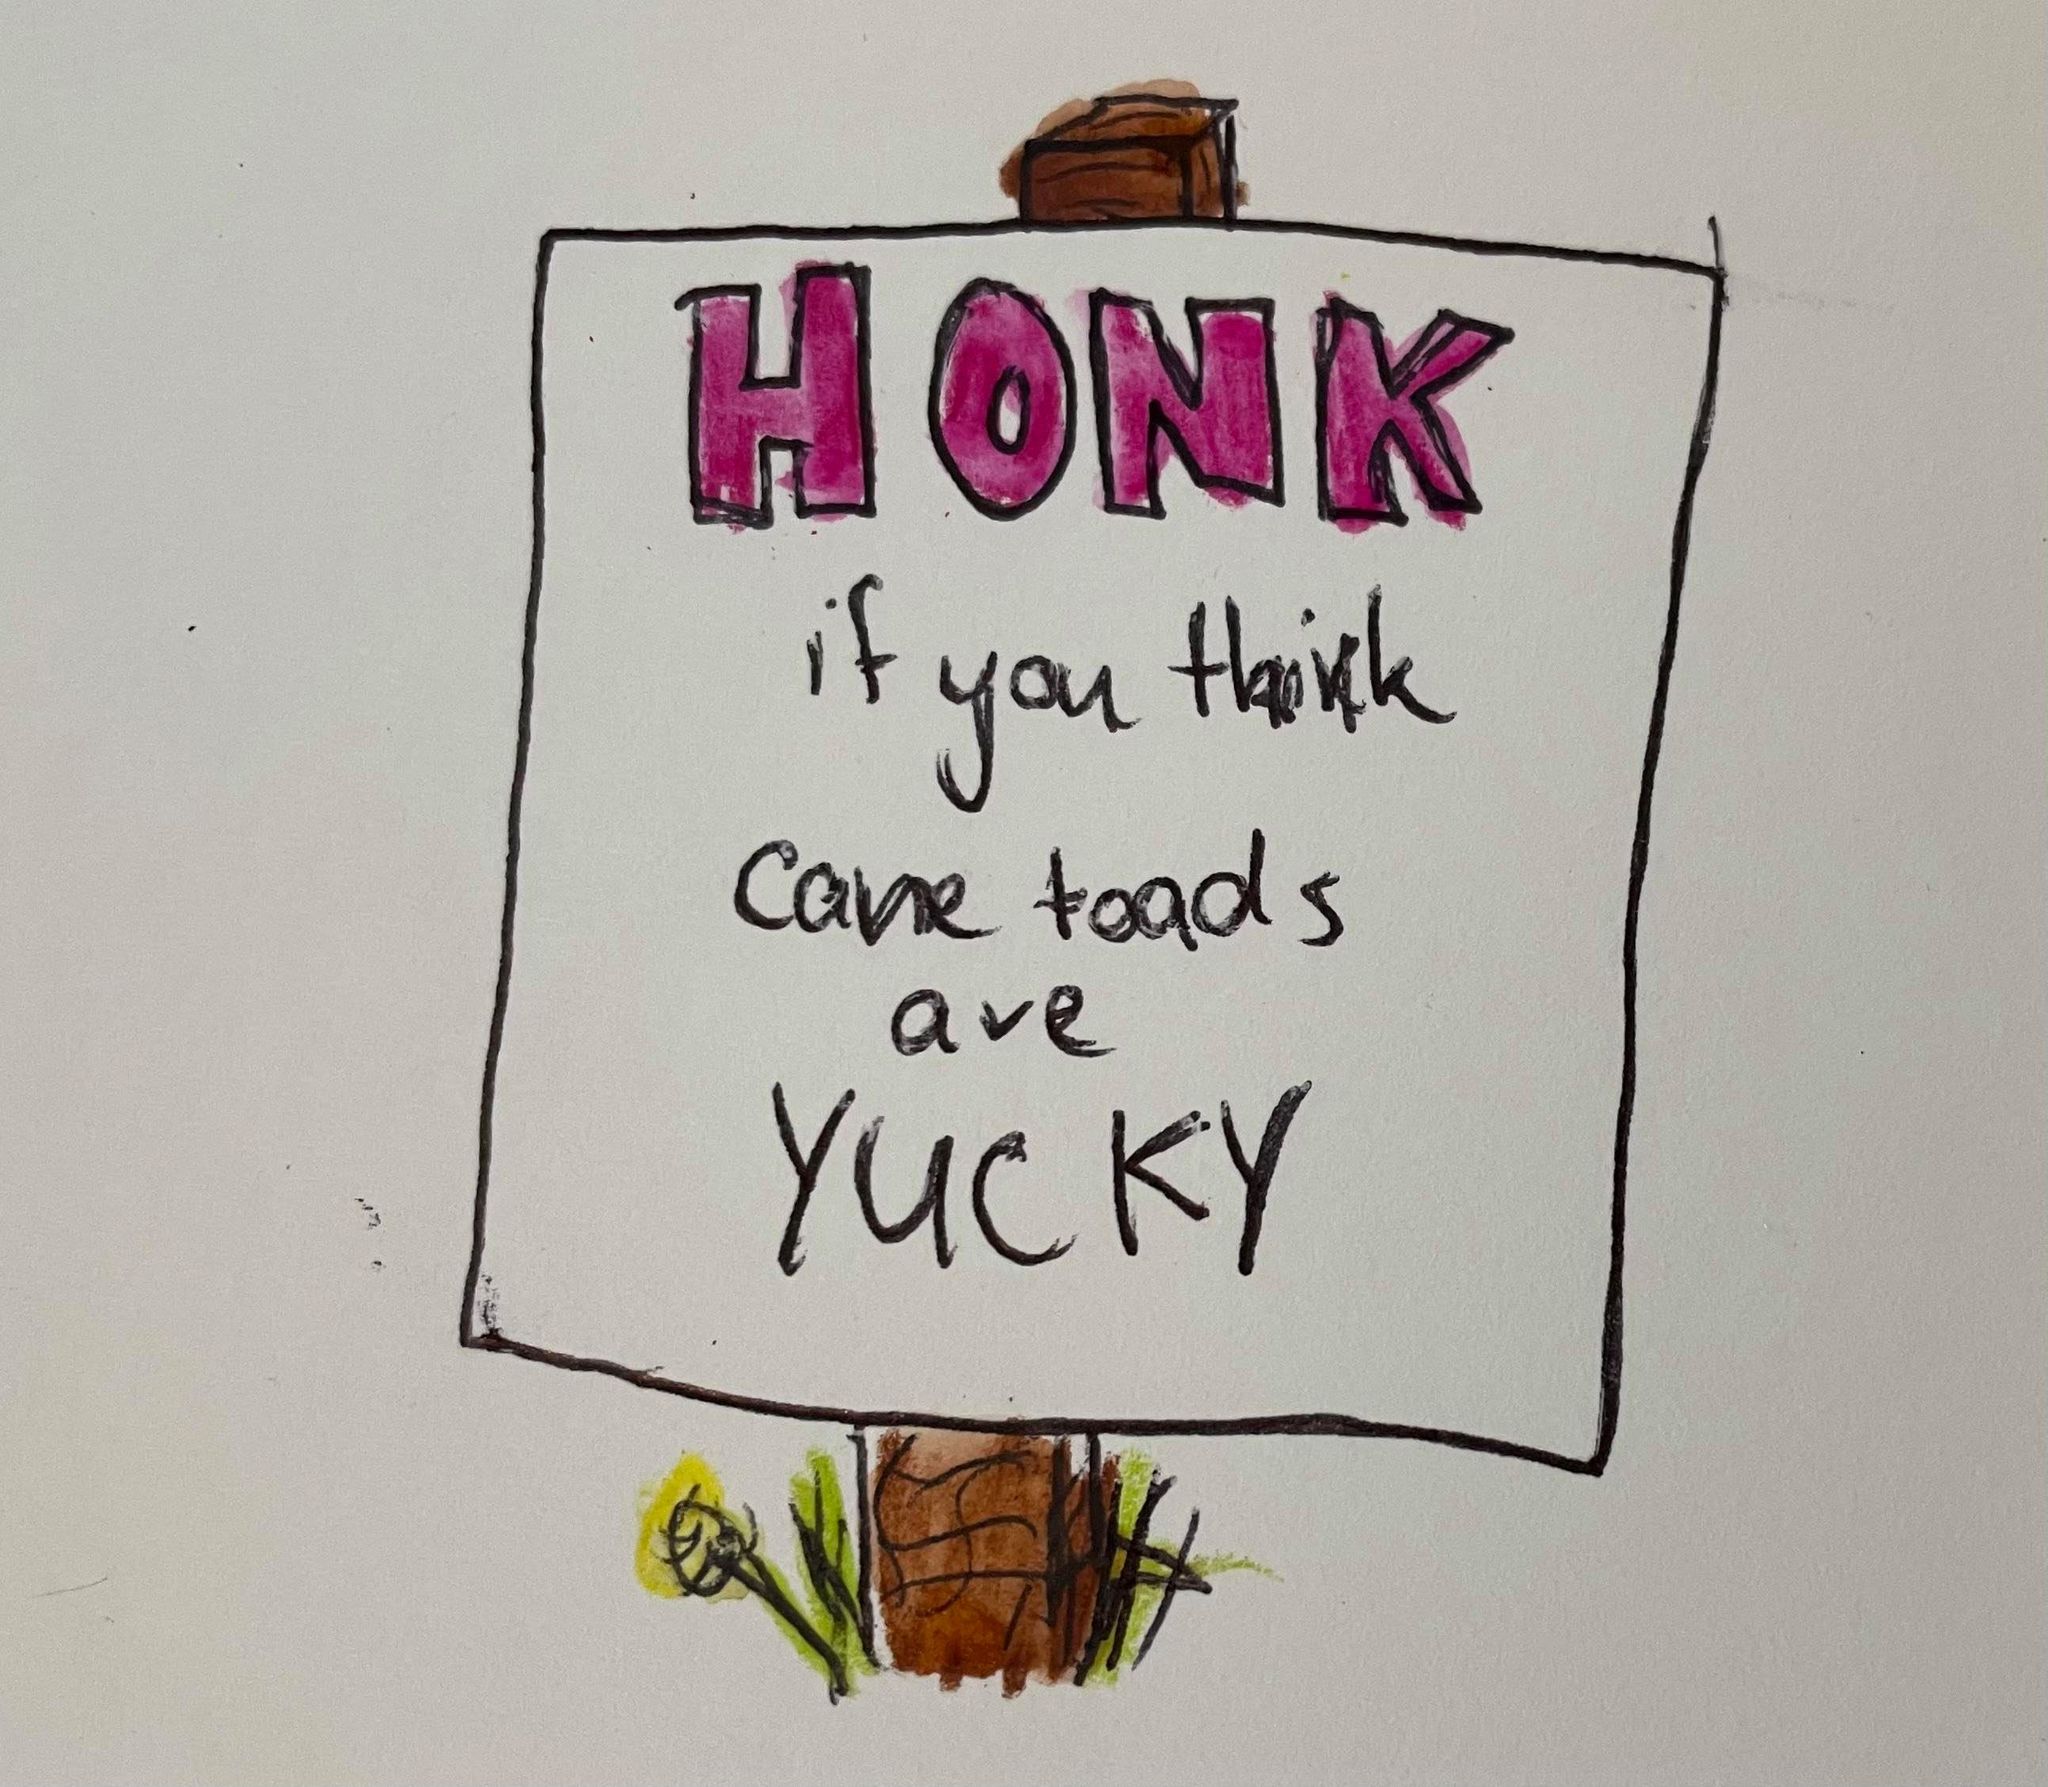 HONK
if you think
cane toads
are
YUCKY